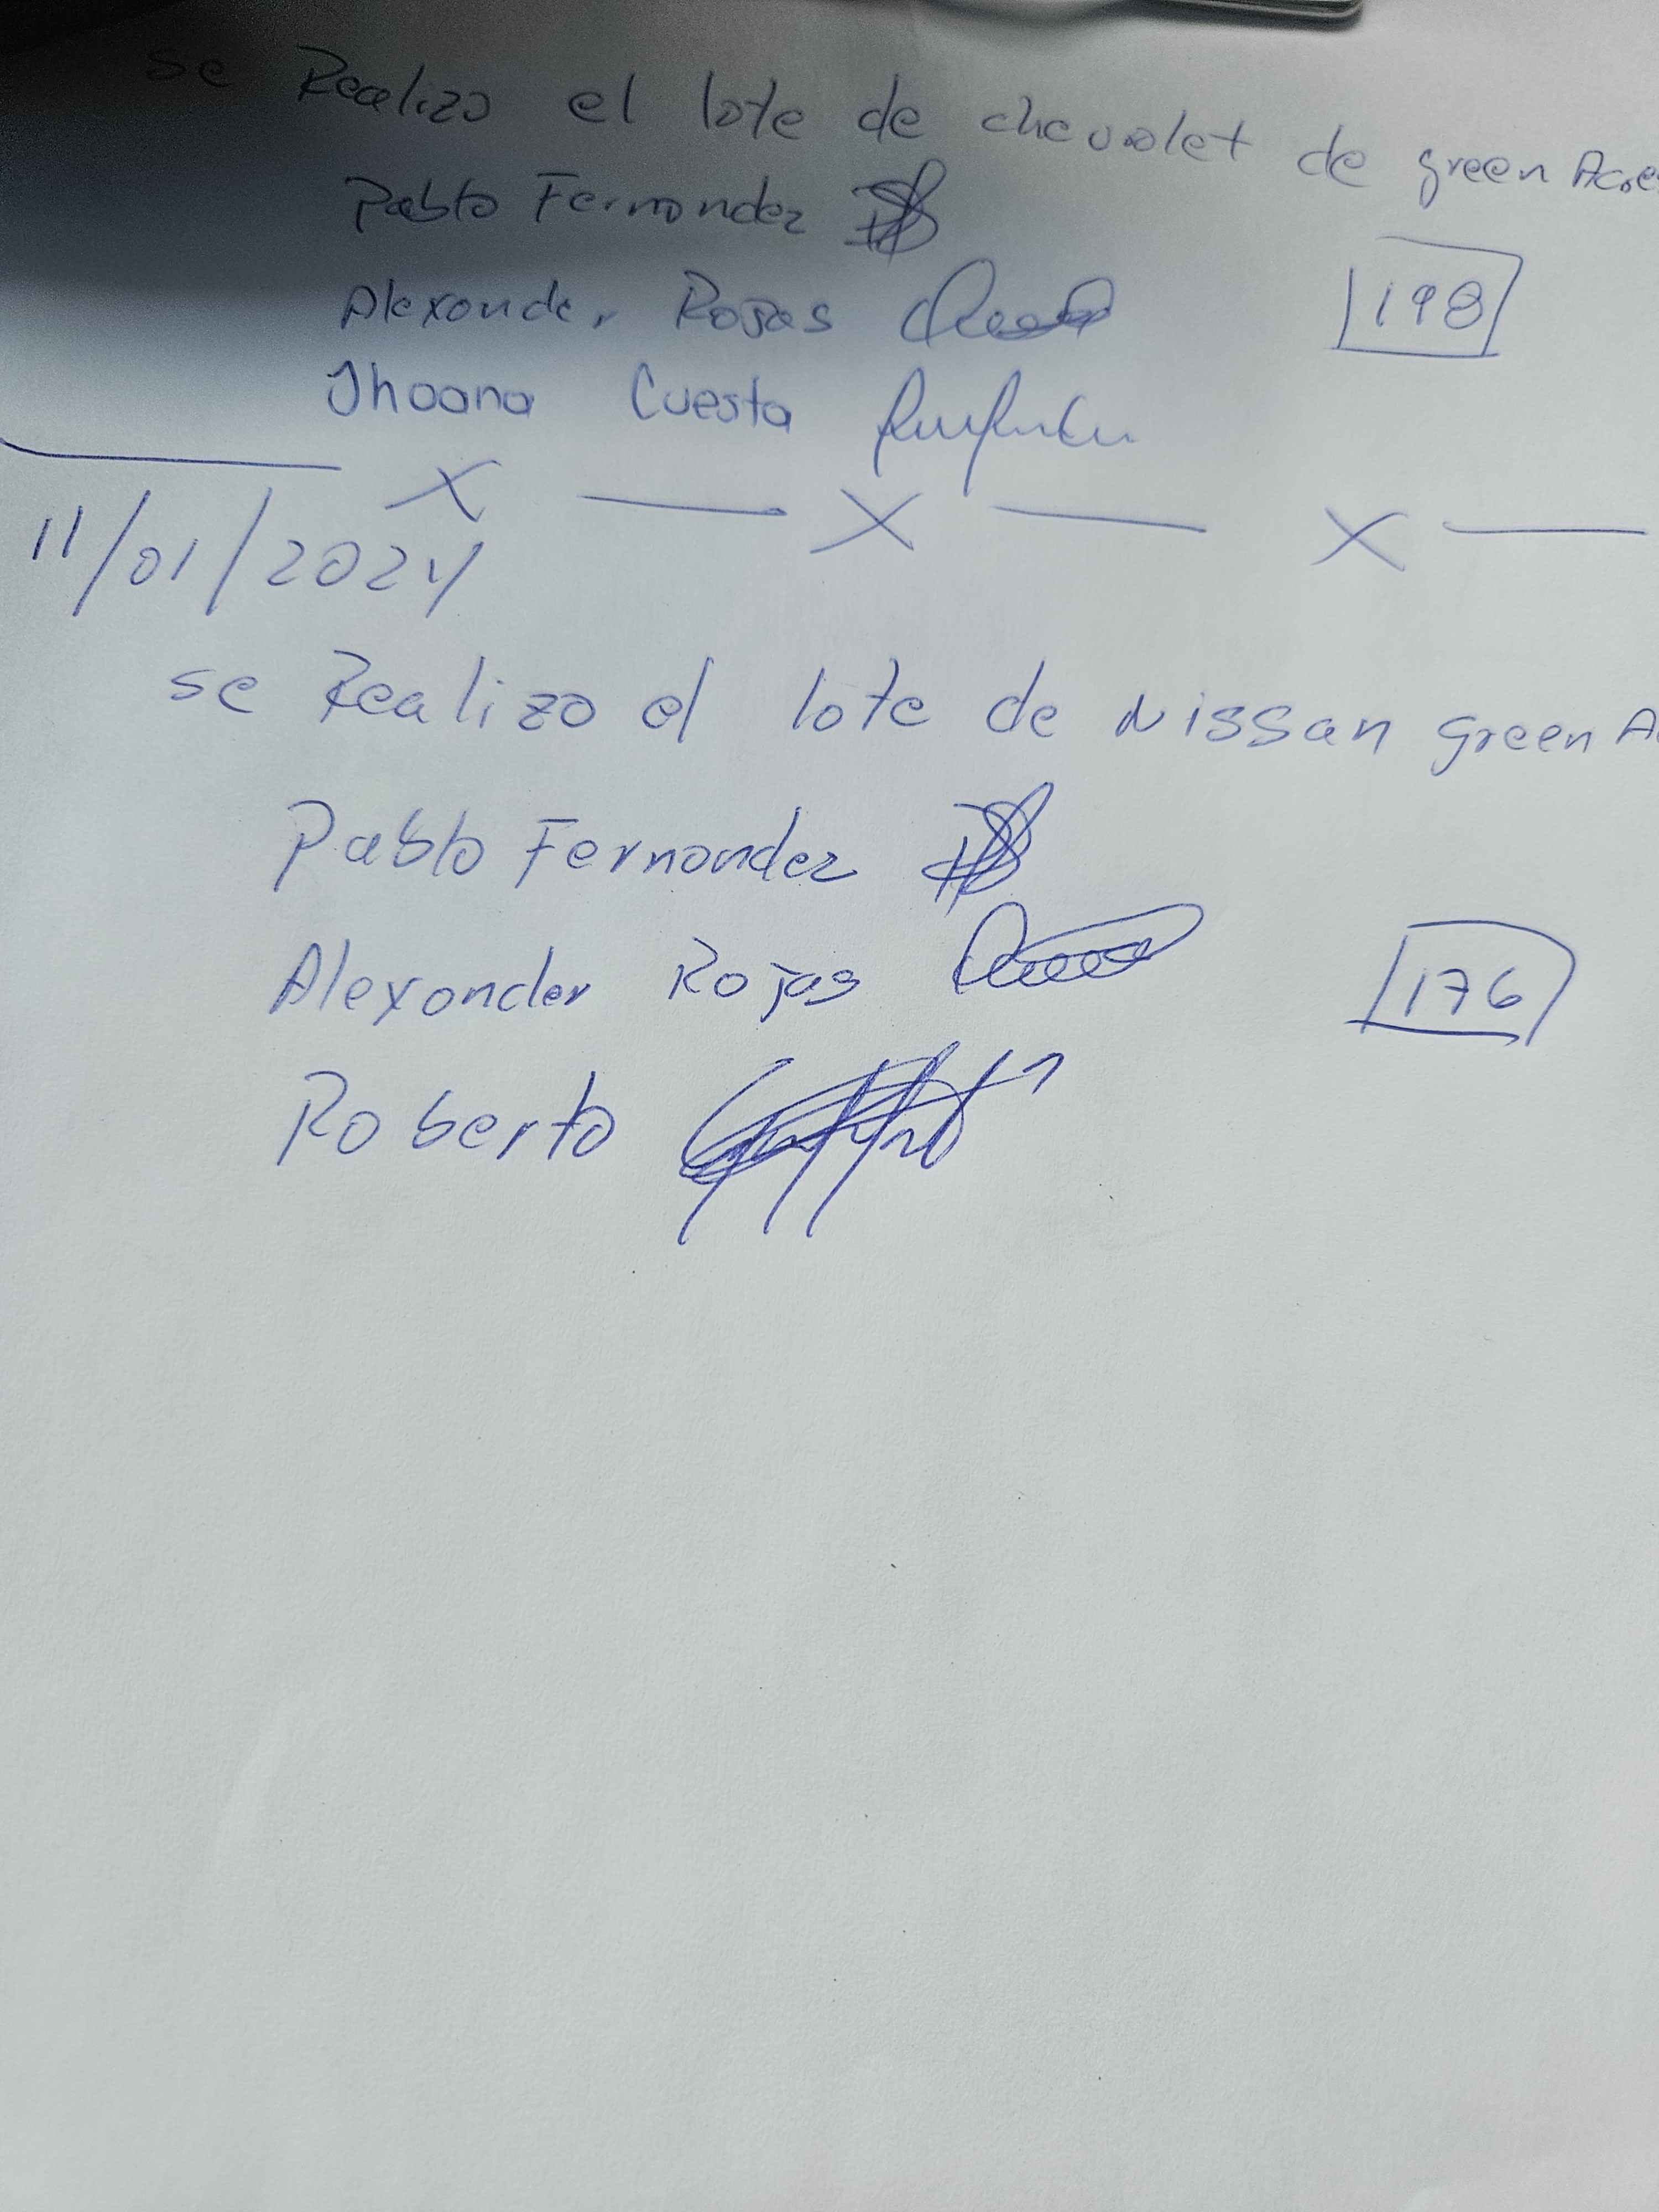 se Realizo el lote de chevolet de green Acre
Pablo Fernandez
Alexander Rojas
198
Jhoana Cuesta
X — X — X —
11/01/2024
se Realizo el lote de Nissan green A
Pablo Fernandez
Alexander Rojas
176
Roberto